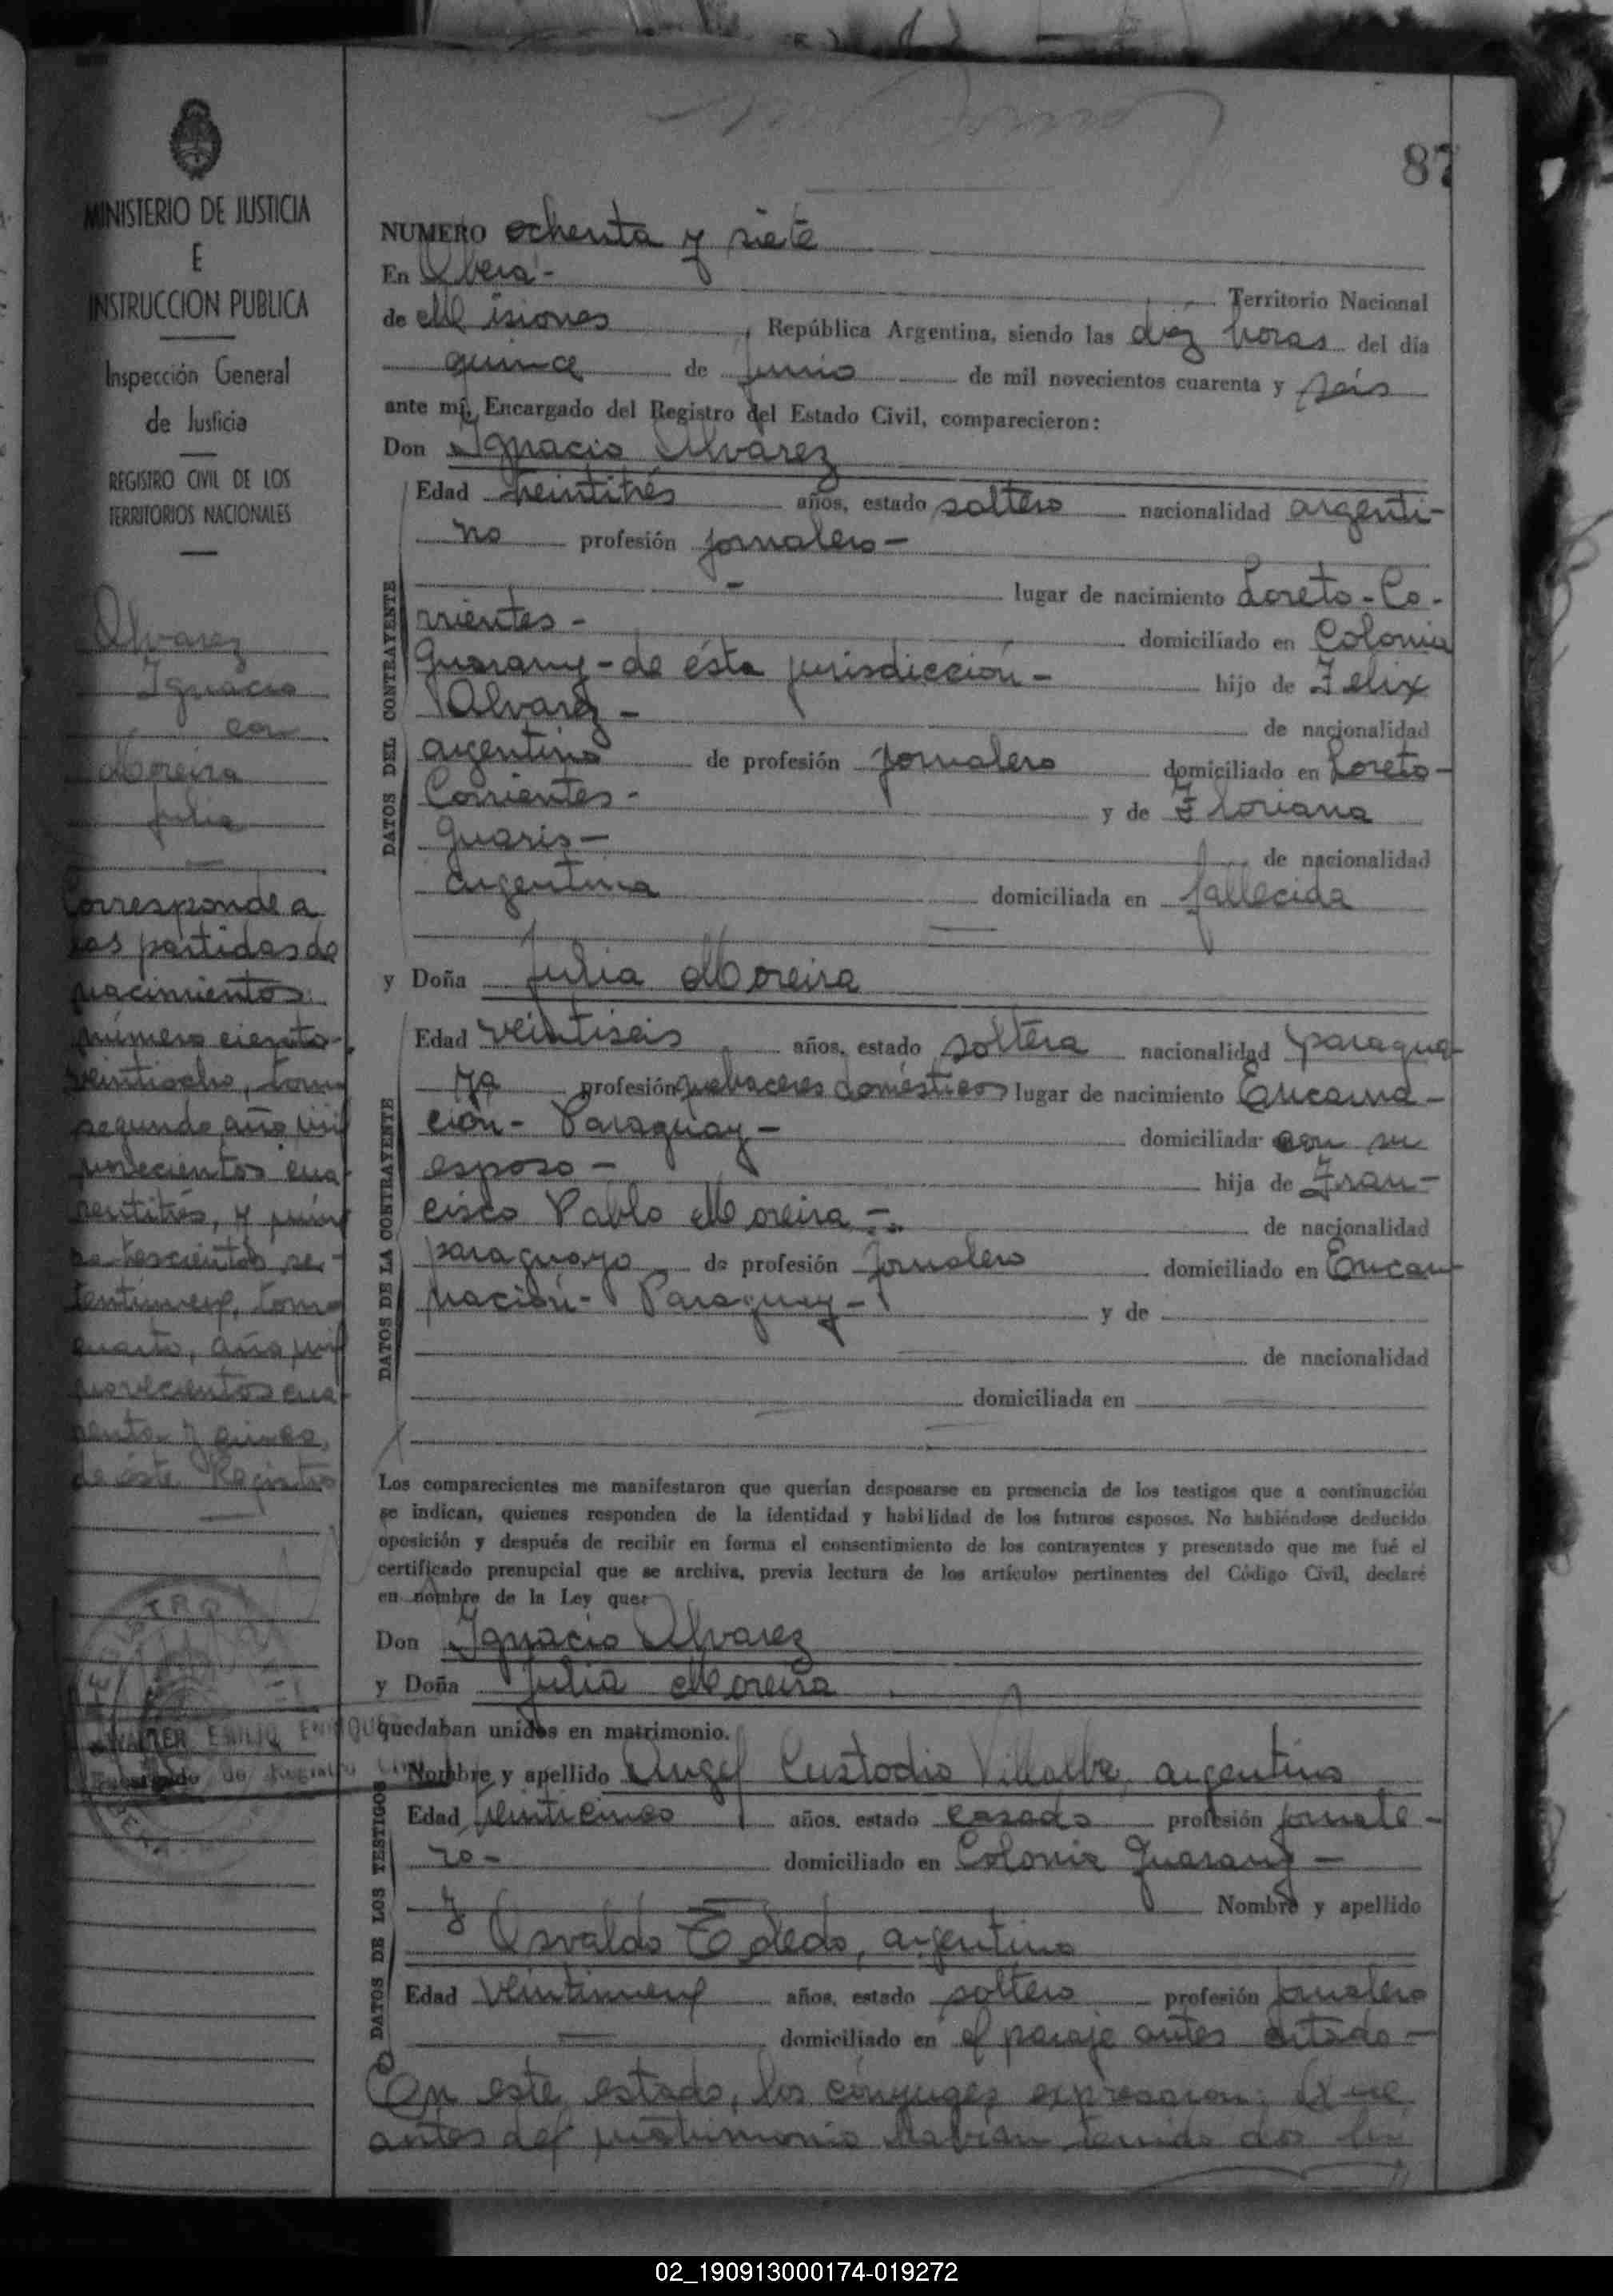 87
MINISTERIO DE JUSTICIA
E
INSTRUCCION PUBLICA
Inspección General
de Justicia
REGISTRO CIVIL DE LOS
TERRITORIOS NACIONALES
Alvarez
Ignacio
con
Moreira
Julia
Corresponde a
las partidas de
nacimientos:
número ciento
veintiocho, tomo
segundo, año mil
novecientos cua-
rentitrés, y núme-
ro trescientos se-
tentinueve, tomo
cuarto, año mil
novecientos cua-
renta y cinco,
de éste Registro
WALTER EMILIO ENRIQUEZ
Encargado de Registro Civil
NUMERO ochenta y siete
En Oberá-
Territorio Nacional
de Misiones, República Argentina, siendo las diéz horas del día
quince de junio de mil novecientos cuarenta y seis
ante mí, Encargado del Registro del Estado Civil, comparecieron:
Don Ignacio Alvarez
DATOS DEL CONTRAYENTE
Edad treintitrés años, estado soltero nacionalidad argenti-
no profesión jornalero-
lugar de nacimiento Loreto-Co-
rrientes- domiciliado en Colonia
Guarany-de ésta jurisdicción- hijo de Felix
Alvarez- de nacionalidad
argentino de profesión jornalero domiciliado en Loreto-
Corrientes- y de Floriana
Guaris- de nacionalidad
argentina domiciliada en fallecida
y Doña Julia Moreira
DATOS DE LA CONTRAYENTE
Edad veintiseis años, estado soltera nacionalidad paragua-
ya profesión quehaceres domésticos lugar de nacimiento Encarna-
ción- Paraguay- domiciliada con su
esposo- hija de Fran-
cisco Pablo Moreira- de nacionalidad
paraguayo de profesión jornalero domiciliado en Encar-
nación- Paraguay- y de
de nacionalidad
domiciliada en
Los comparecientes me manifestaron que querían desposarse en presencia de los testigos que a continuación
se indican, quienes responden de la identidad y habilidad de los futuros esposos. No habiéndose deducido
oposición y después de recibir en forma el consentimiento de los contrayentes y presentado que me fué el
certificado prenupcial que se archiva, previa lectura de los artículos pertinentes del Código Civil, declaré
en nombre de la Ley que:
Don Ignacio Alvarez
y Doña Julia Moreira
quedaban unidos en matrimonio.
DATOS DE LOS TESTIGOS
Nombre y apellido Angel Custodio Villalba, argentino
Edad veinticinco años, estado casado profesión jornale-
ro- domiciliado en Colonia Guarany-
y Nombre y apellido
Osvaldo Toledo, argentino
Edad veintinueve años, estado soltero profesión jornalero
domiciliado en el paraje antes citado-
En este estado, los cónyuges expresaron: Que
antes del matrimonio habían tenido dos hi
02_190913000174-019272